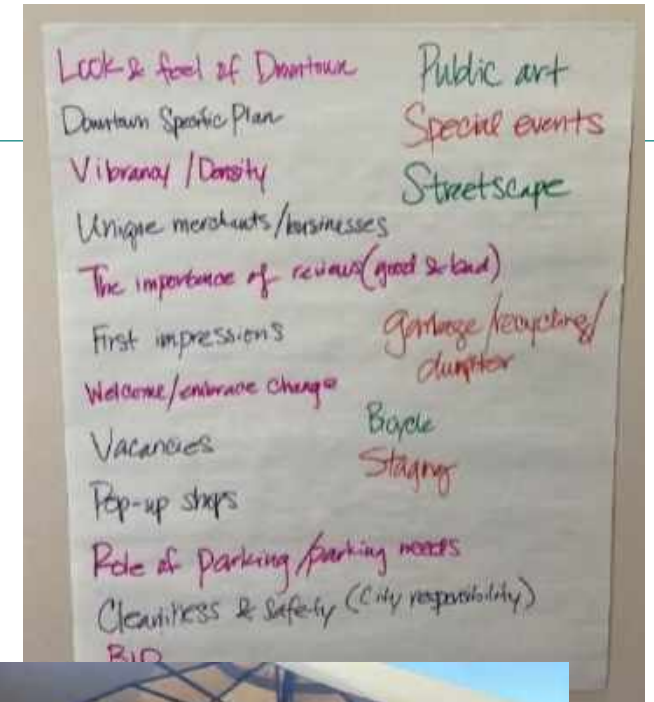 Look & feel of Downtown
Downtown Specific Plan
Vibrancy / Density
Unique merchants/businesses
The importance of reviews (good & bad)
First impressions
Welcome/embrace change
Vacancies
Pop-up shops
Role of parking/parking needs
Cleanliness & safety (City responsibility)
BID
Public art
Special events
Streetscape
Garbage/recycling/
dumpster
Bicycle
Staging